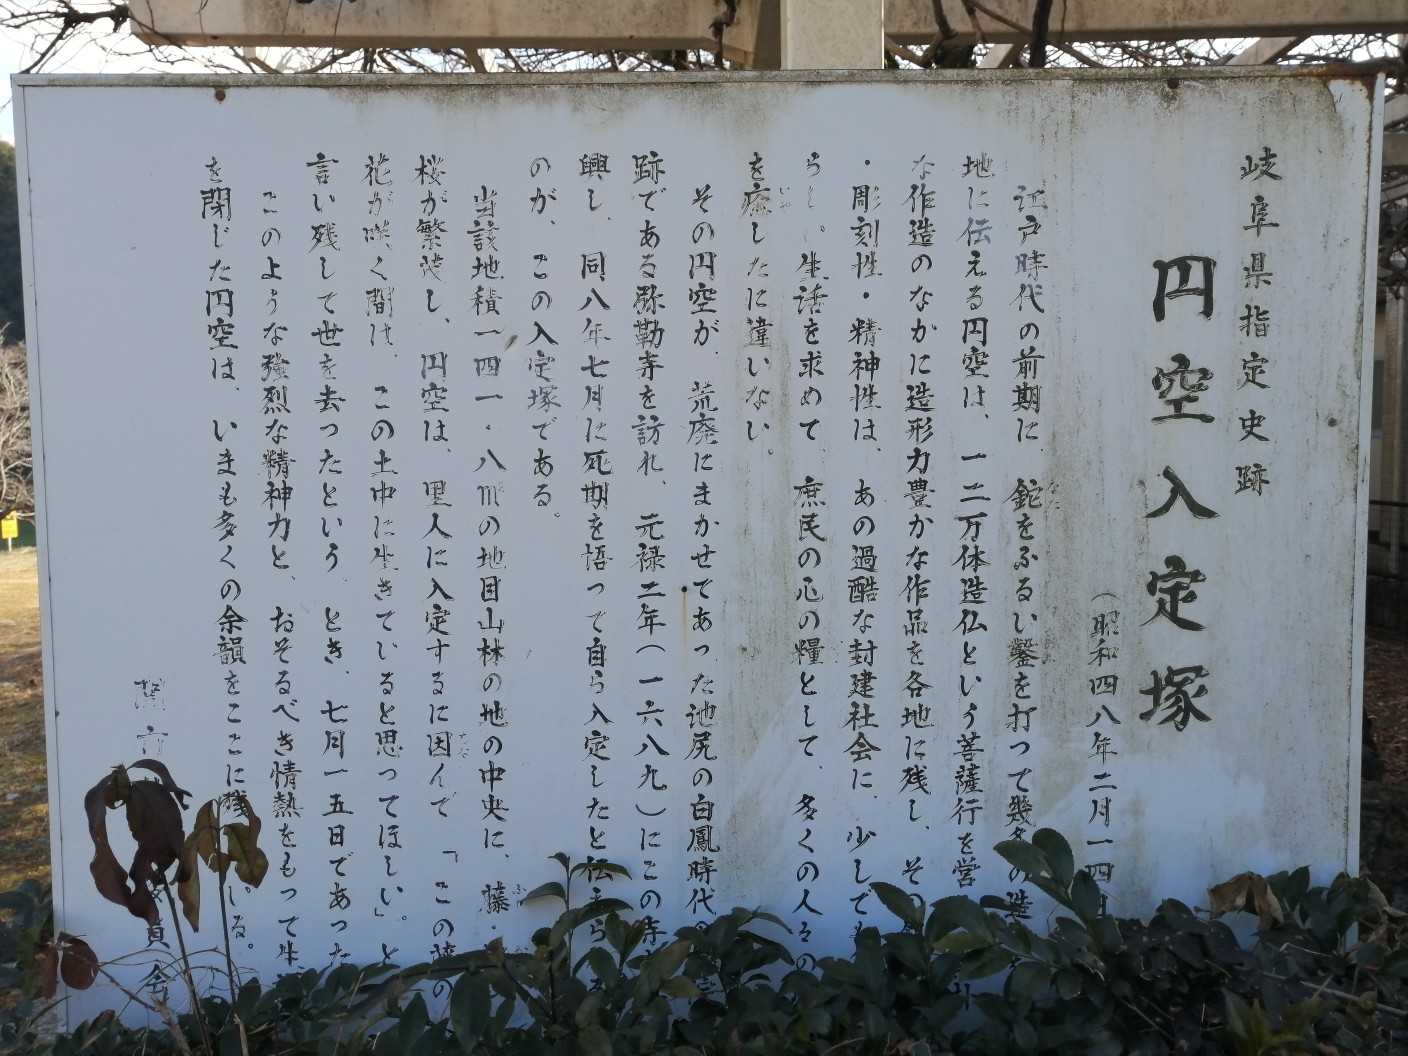 岐阜県指定史跡
円空入定塚
（昭和四八年二月一四日
江戸時代の前期に、鉈をふるい鑿を打って幾多の造
地に伝える円空は、一二万体造仏という菩薩行を営
な作造のなかに造形力豊かな作品を各地に残し、その
・彫刻性・精神性は、あの過酷な封建社会に、少しでも
らしい生活を求めて、庶民の心の糧として、多くの人々の
を癒したに違いない。
その円空が、荒廃にまかせてあった池尻の白鳳時代の
跡である弥勒寺を訪れ、元禄二年（一六八九）にこの寺
興し、同八年七月に死期を悟って自ら入定したと伝
のが、この入定塚である。
当該地積一四一・八㎡の地目山林の地の中央に、藤・
桜が繁茂し、円空は、里人に入定するに因んで「この藤の
花が咲く間は、この土中に生きていると思ってほしい」と
言い残して世を去ったという。とき、七月一五日であった
このような強烈な精神力と、おそるべき情熱をもって生
を閉じた円空は、いまも多くの余韻をここに残している。
関市 員会